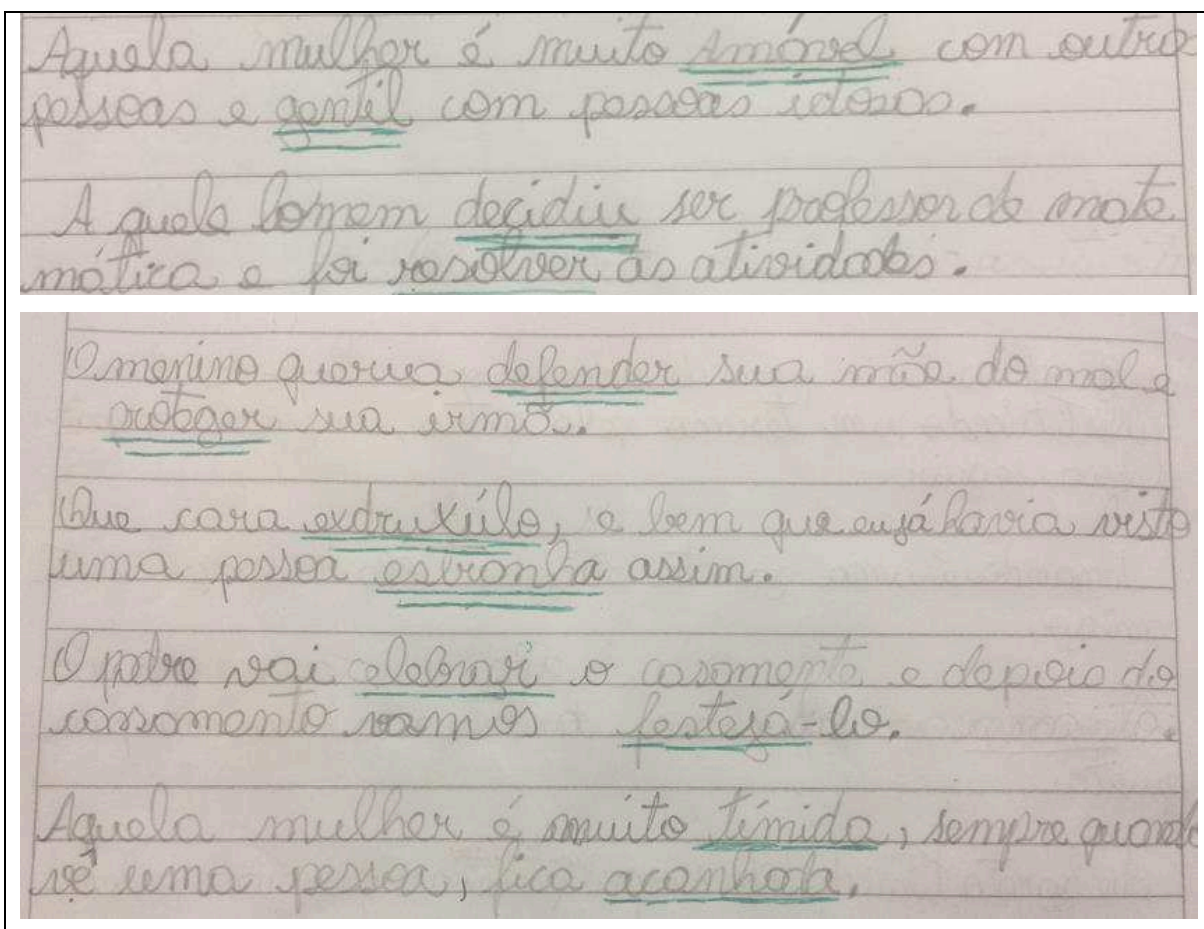 Aquela mulher é muito amável com outras
pessoas e gentil com pessoas idosas.
A quele homem decidiu ser professor de mate
mática e foi resolver as atividades.
O menino queria defender sua mãe do mal e
proteger sua irmã.
Que cara exdruxúlo, e bem que eu já havia visto
uma pessoa estronha assim.
O padre vai celebrar o casamento e depois do
cassamento vamos festejá-lo.
Aquela mulher é muito tímida, sempre quando
vê uma pessoa, fica acanhada.